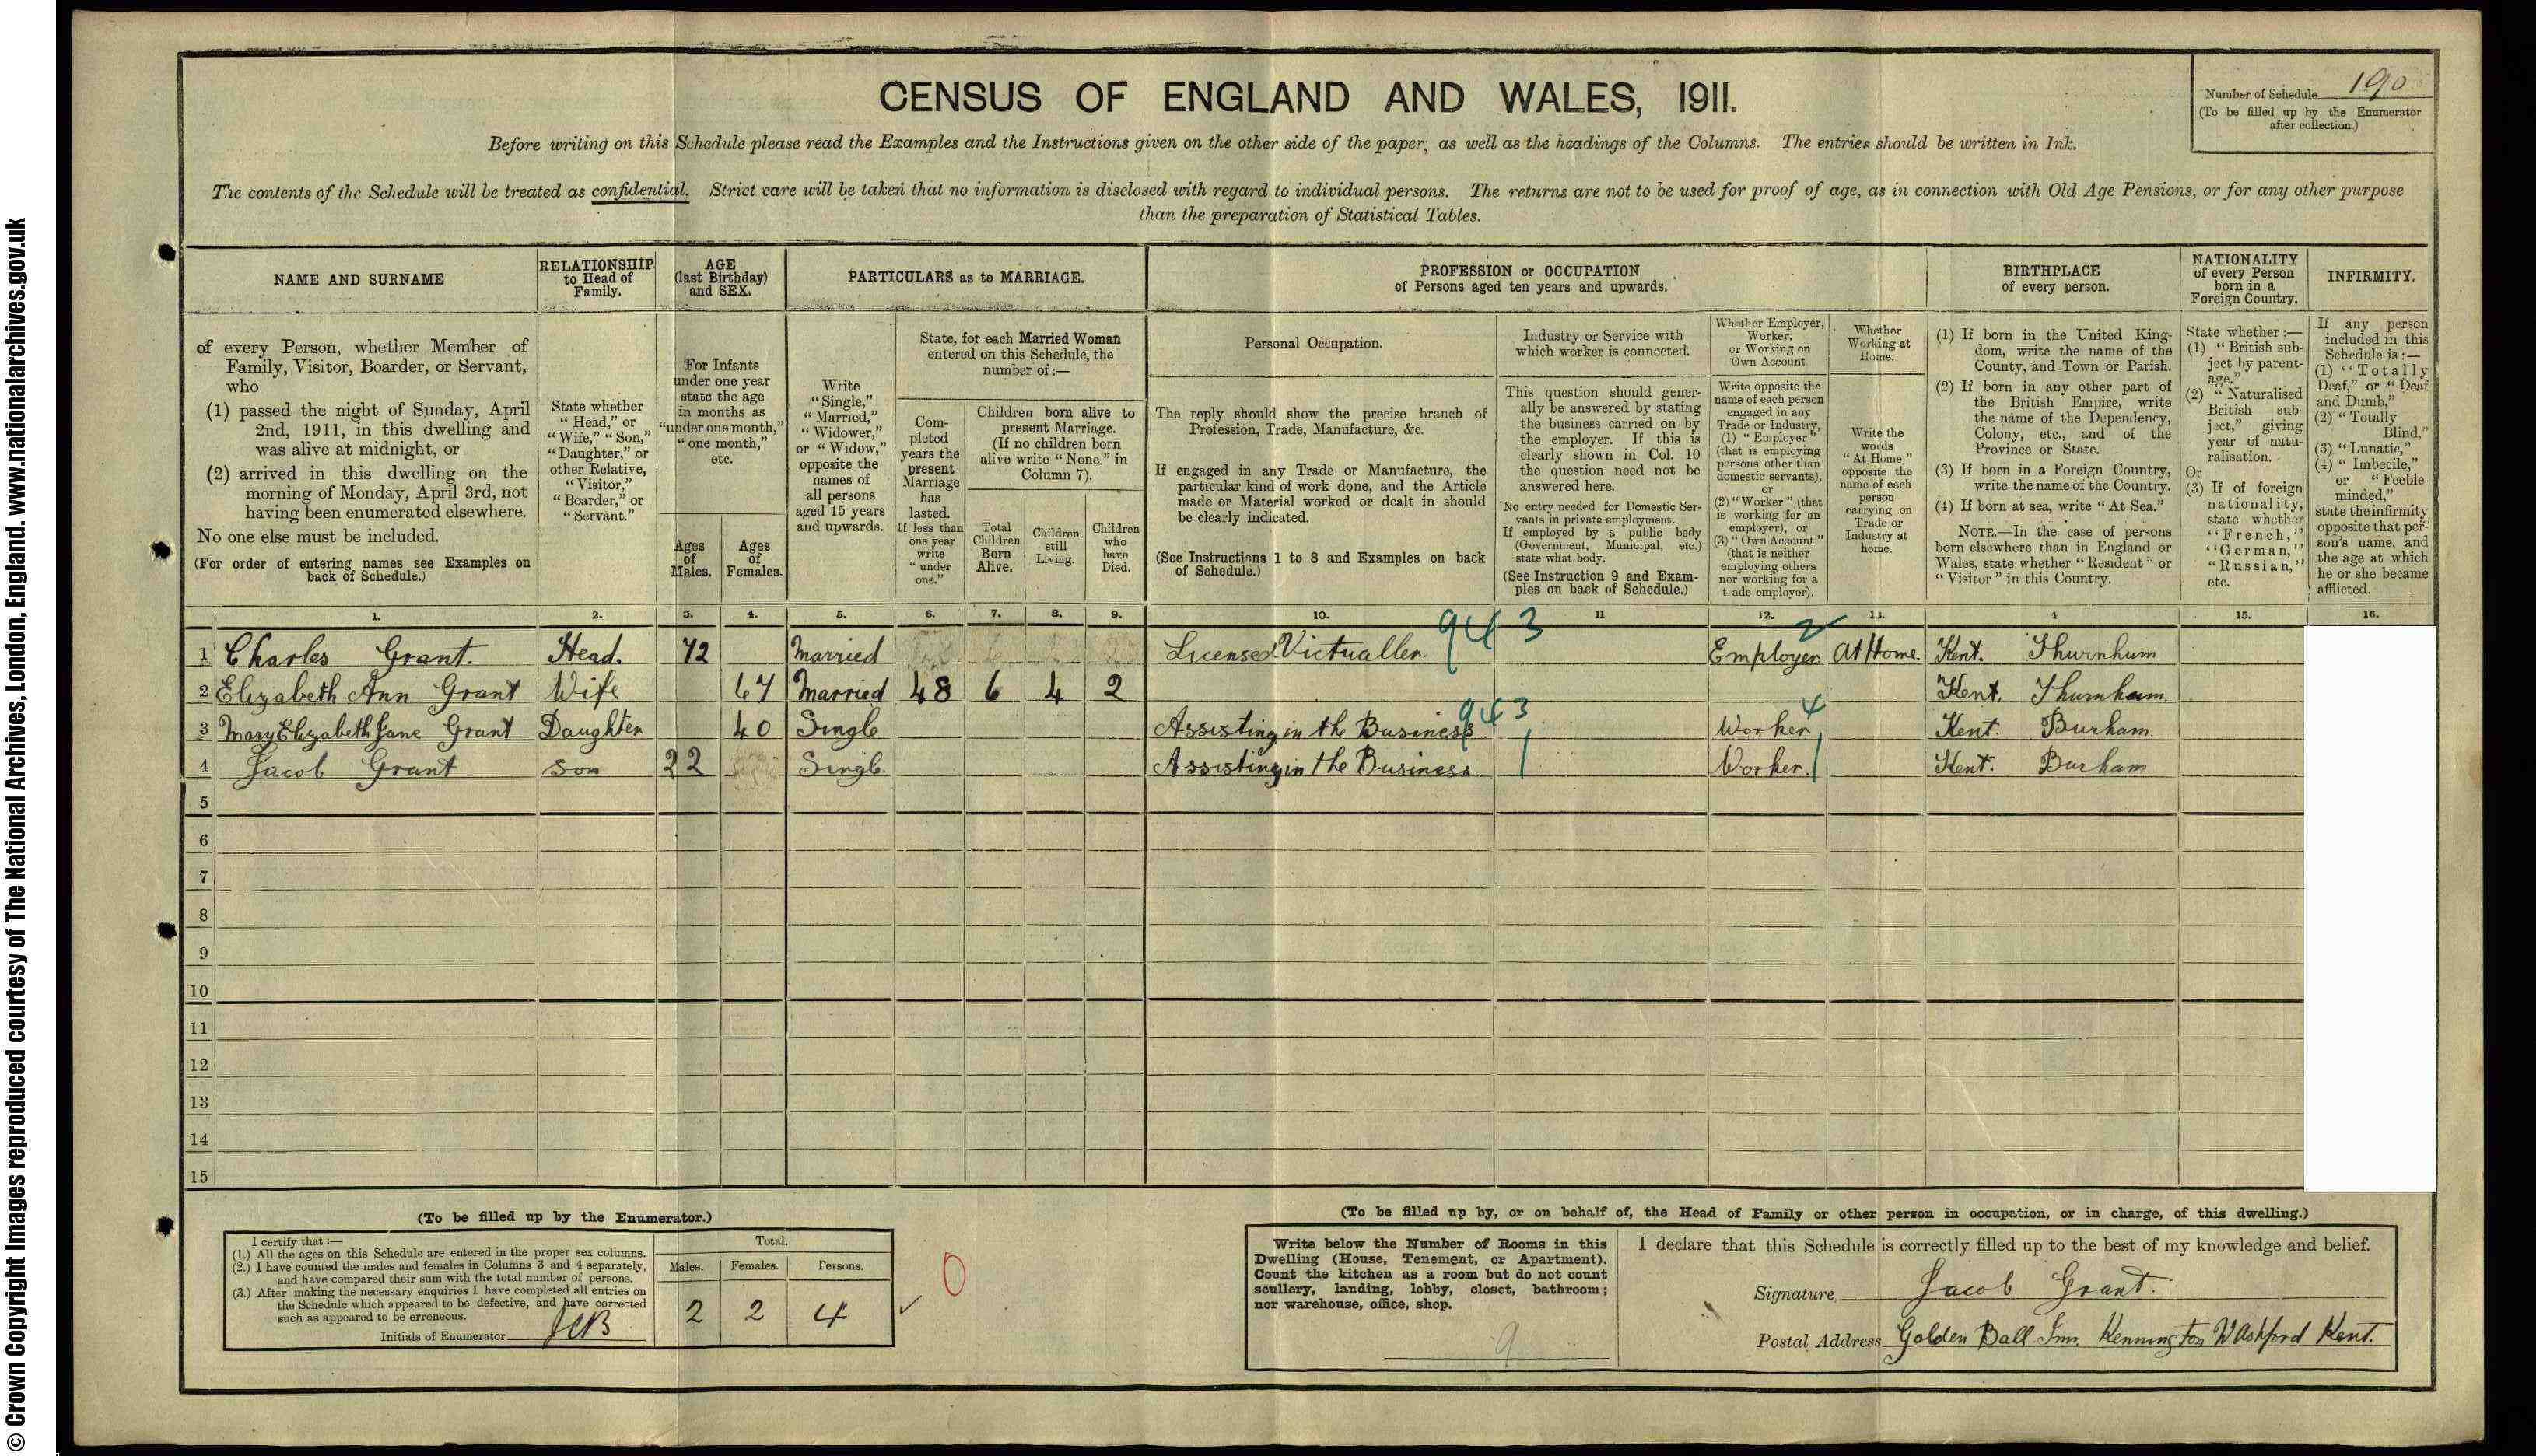 © Crown Copyright Images reproduced courtesy of The National Archives, London, England. www.nationalarchives.gov.uk
CENSUS OF ENGLAND AND WALES, 1911.
Number of Schedule 190
(To be filled up by the Enumerator
after collection.)
Before writing on this Schedule please read the Examples and the Instructions given on the other side of the paper, as well as the headings of the Columns. The entries should be written in Ink.
The contents of the Schedule will be treated as confidential. Strict care will be taken that no information is disclosed with regard to individual persons. The returns are not to be used for proof of age, as in connection with Old Age Pensions, or for any other purpose
than the preparation of Statistical Tables.
NAME AND SURNAME
of every Person, whether Member of
Family, Visitor, Boarder, or Servant,
who
(1) passed the night of Sunday, April
2nd, 1911, in this dwelling and
was alive at midnight, or
(2) arrived in this dwelling on the
morning of Monday, April 3rd, not
having been enumerated elsewhere.
No one else must be included.
(For order of entering names see Examples on
back of Schedule.)
RELATIONSHIP
to Head of
Family.
State whether
"Head," or
"Wife," "Son,"
"Daughter," or
other Relative,
"Visitor,"
"Boarder," or
"Servant."
AGE
(last Birthday)
and SEX.
For Infants
under one year
state the age
in months as
"under one month,"
"one month,"
etc.
Ages
of
Males.
Ages
of
Females.
PARTICULARS as to MARRIAGE.
Write
"Single,"
"Married,"
"Widower,"
or "Widow,"
opposite the
names of
all persons
aged 15 years
and upwards.
State, for each Married Woman
entered on this Schedule, the
number of:—
Com-
pleted
years the
present
Marriage
has
lasted.
If less than
one year
write
"under
one."
Children born alive to
present Marriage.
(If no children born
alive write "None" in
Column 7).
Total
Children
Born
Alive.
Children
still
Living.
Children
who
have
Died.
PROFESSION or OCCUPATION
of Persons aged ten years and upwards.
Personal Occupation.
The reply should show the precise branch of
Profession, Trade, Manufacture, &c.
If engaged in any Trade or Manufacture, the
particular kind of work done, and the Article
made or Material worked or dealt in should
be clearly indicated.
(See Instructions 1 to 8 and Examples on back
of Schedule.)
Industry or Service with
which worker is connected.
This question should gener-
ally be answered by stating
the business carried on by
the employer. If this is
clearly shown in Col. 10
the question need not be
answered here.
No entry needed for Domestic Ser-
vants in private employment.
If employed by a public body
(Government, Municipal, etc.)
state what body.
(See Instruction 9 and Exam-
ples on back of Schedule.)
Whether Employer,
Worker,
or Working on
Own Account
Write opposite the
name of each person
engaged in any
Trade or Industry,
(1) "Employer"
(that is employing
persons other than
domestic servants),
or
(2) "Worker" (that
is working for an
employer), or
(3) "Own Account"
(that is neither
employing others
nor working for a
trade employer).
Whether
Working at
Home.
Write the
words
"At Home"
opposite the
name of each
person
carrying on
Trade or
Industry at
home.
BIRTHPLACE
of every person.
(1) If born in the United King-
dom, write the name of the
County, and Town or Parish.
(2) If born in any other part of
the British Empire, write
the name of the Dependency,
Colony, etc., and of the
Province or State.
(3) If born in a Foreign Country,
write the name of the Country.
(4) If born at sea, write "At Sea."
NOTE.—In the case of persons
born elsewhere than in England or
Wales, state whether "Resident" or
"Visitor" in this Country.
NATIONALITY
of every Person
born in a
Foreign Country.
State whether:—
(1) "British sub-
ject by parent-
age."
(2) "Naturalised
British sub-
ject," giving
year of natu-
ralisation.
Or
(3) If of foreign
nationality,
state whether
"French,"
"German,"
"Russian,"
etc.
INFIRMITY.
If any person
included in this
Schedule is:—
(1) "Totally
Deaf," or "Deaf
and Dumb,"
(2) "Totally
Blind,"
(3) "Lunatic,"
(4) "Imbecile,"
or "Feeble-
minded,"
state the infirmity
opposite that per-
son's name, and
the age at which
he or she became
afflicted.
1. 2. 3. 4. 5. 6. 7. 8. 9. 10. 11 12. 13. 4 15. 16.
1 Charles Grant. Head. 72 Married Licensed Victualler 943 Employer 2 At Home. Kent. Thurnhum
2 Elizabeth Ann Grant Wife 67 Married 48 6 4 2 Kent. Thurnham.
3 Mary Elizabeth Jane Grant Daughter 40 Single Assisting in the Business 943 Worker 4 Kent. Burham.
4 Jacob Grant Son 22 Single Assisting in the Business Worker. Kent. Burham.
5
6
7
8
9
10
11
12
13
14
15
(To be filled up by the Enumerator.)
I certify that:—
(1.) All the ages on this Schedule are entered in the proper sex columns.
(2.) I have counted the males and females in Columns 3 and 4 separately,
and have compared their sum with the total number of persons.
(3.) After making the necessary enquiries I have completed all entries on
the Schedule which appeared to be defective, and have corrected
such as appeared to be erroneous.
Initials of Enumerator
Total.
Males. Females. Persons.
2 2 4
0
(To be filled up by, or on behalf of, the Head of Family or other person in occupation, or in charge, of this dwelling.)
Write below the Number of Rooms in this
Dwelling (House, Tenement, or Apartment).
Count the kitchen as a room but do not count
scullery, landing, lobby, closet, bathroom;
nor warehouse, office, shop.
9
I declare that this Schedule is correctly filled up to the best of my knowledge and belief.
Signature Jacob Grant.
Postal Address Golden Ball Inn. Kennington Ashford Kent.